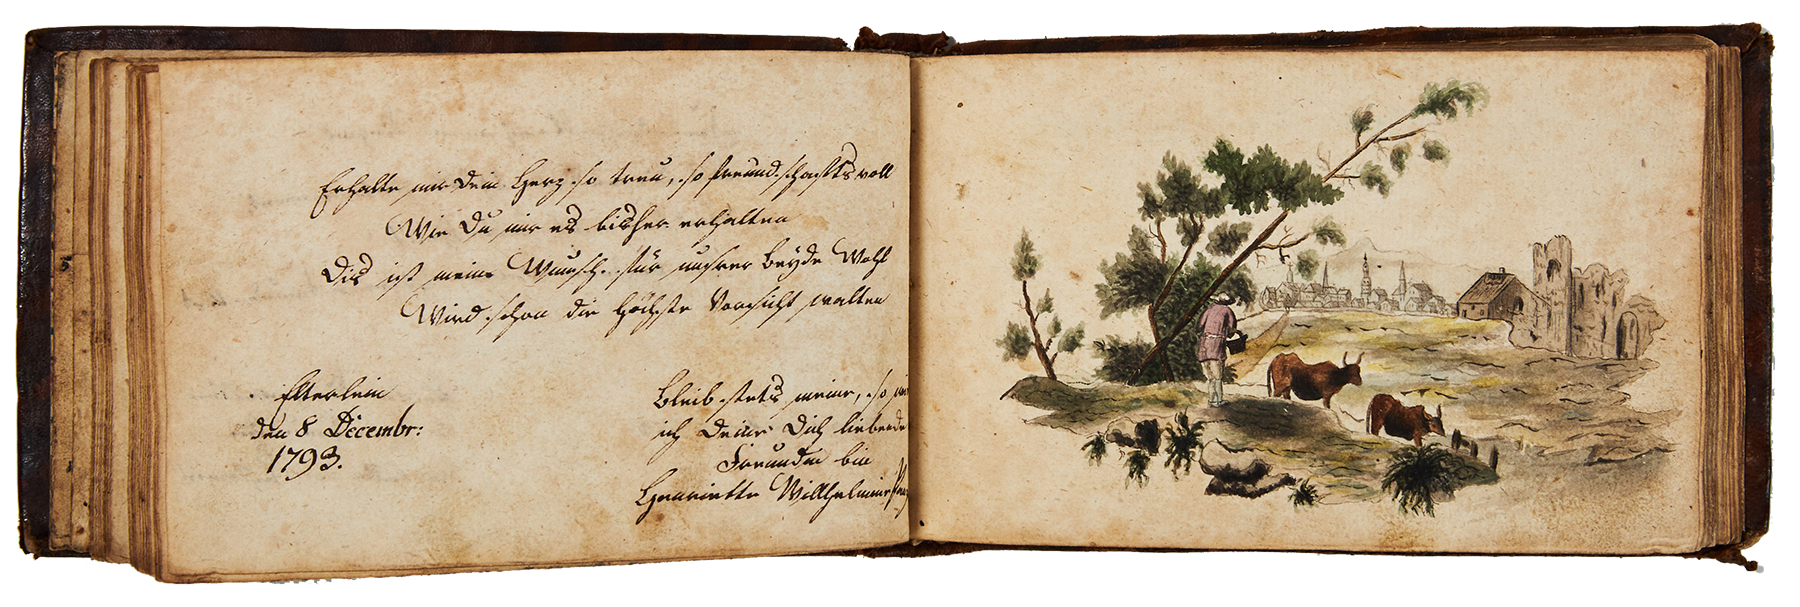 Erhalte mir dein Herz so treu, so freundschaftsvoll
Wie Du mir es bisher erhalten
Dis ist meine Wunsch. für unsrer beyde Wohl
Wird schon die höchste Vorsicht walten
Elterlein
den 8 Decembr:
1793.
Bleib stets meine, so wie
ich Deine Dich liebende
Freundin bin
Henriette Willhelmine